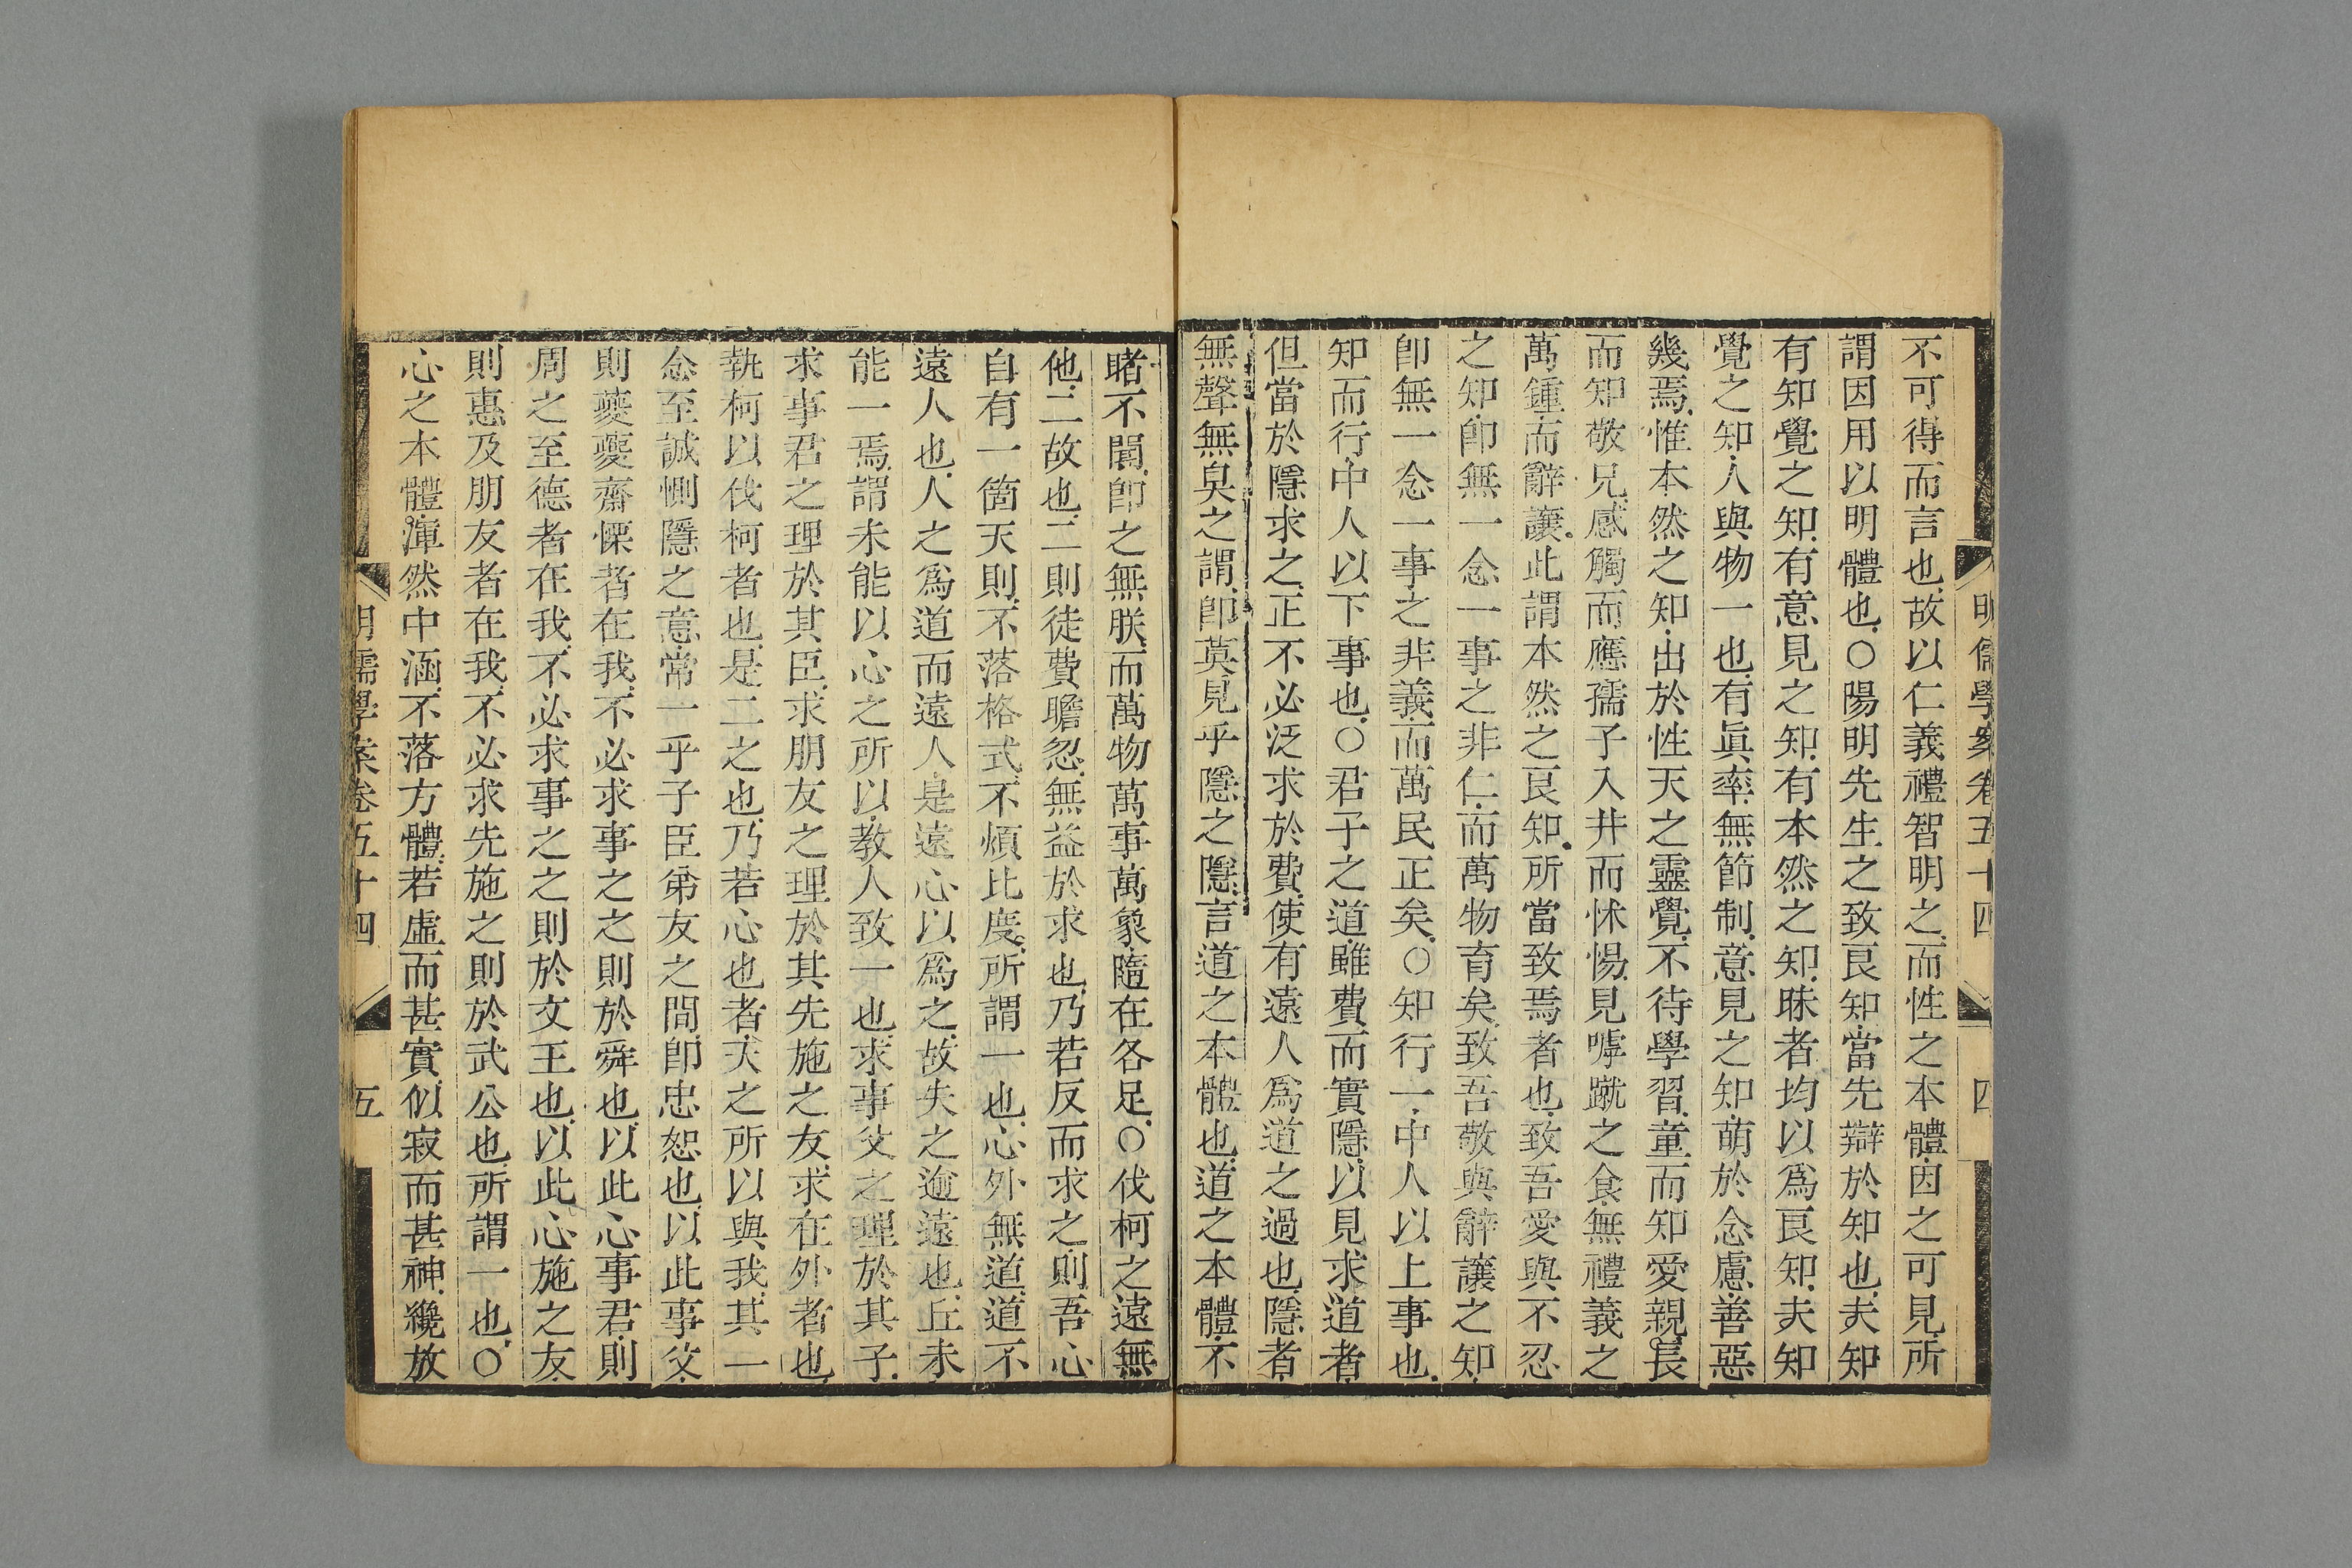 明儒學案卷五十四 四
不可得而言也故以仁義禮智明之而性之本體因之可見所
謂因用以明體也○陽明先生之致良知當先辯於知也夫知
有知覺之知有意見之知有本然之知昧者均以爲良知夫知
覺之知人與物一也有眞率無節制意見之知萌於念慮善惡
幾焉惟本然之知出於性天之靈覺不待學習童而知愛親長
而知敬兄感觸而應孺子入井而怵惕見嘑蹴之食無禮義之
萬鍾而辭讓此謂本然之良知所當致焉者也致吾愛與不忍
之知卽無一念一事之非仁而萬物育矣致吾敬與辭讓之知
卽無一念一事之非義而萬民正矣○知行一中人以上事也
知而行中人以下事也○君子之道雖費而實隱以見求道者
但當於隱求之正不必泛求於費使有遠人爲道之過也隱者
無聲無臭之謂卽莫見乎隱之隱言道之本體也道之本體不
睹不聞卽之無朕而萬物萬事萬象隨在各足○伐柯之遠無
他二故也二則徒費瞻忍無益於求也乃若反而求之則吾心
自有一箇天則不落格式不煩比度所謂一也心外無道道不
遠人也人之爲道而遠人是遠心以爲之故失之逾遠也丘未
能一焉謂未能以心之所以教人致一也求事父之理於其子
求事君之理於其臣求朋友之理於其先施之友求在外者也
執柯以伐柯者也是二之也乃若心也者天之所以與我其一
念至誠惻隱之意常一乎子臣弟友之間卽忠恕也以此事父
則夔夔齋慄者在我不必求事之之則於舜也以此心事君則
周之至德者在我不必求事之之則於文王也以此心施之友
則惠及朋友者在我不必求先施之則於武公也所謂一也○
心之本體渾然中涵不落方體若虛而甚實似寂而甚神纔放
明儒學案卷五十四 五